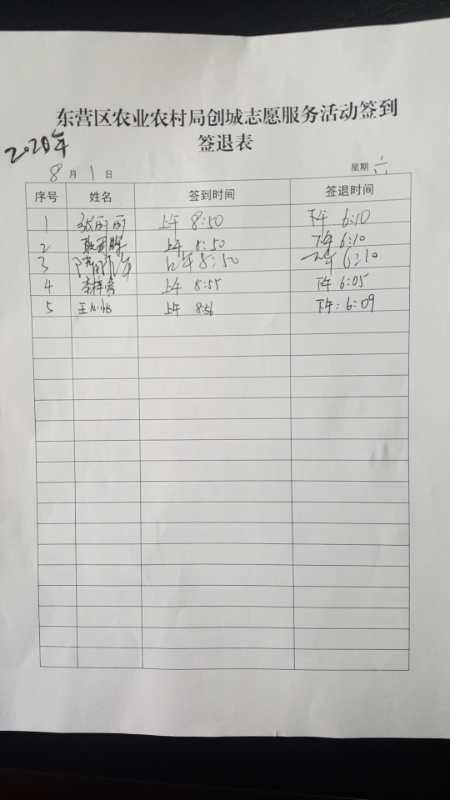 东营区农业农村局创城志愿服务活动签到
签退表
2020年
8月1日 星期六
序号 姓名 签到时间 签退时间
1 张丽丽 上午 8:50 下午 6:10
2 上午 8:50 下午 6:10
3 上午 8:50 下午 6:10
4 上午 8:55 下午 6:05
5 上午 8:56 下午: 6:09